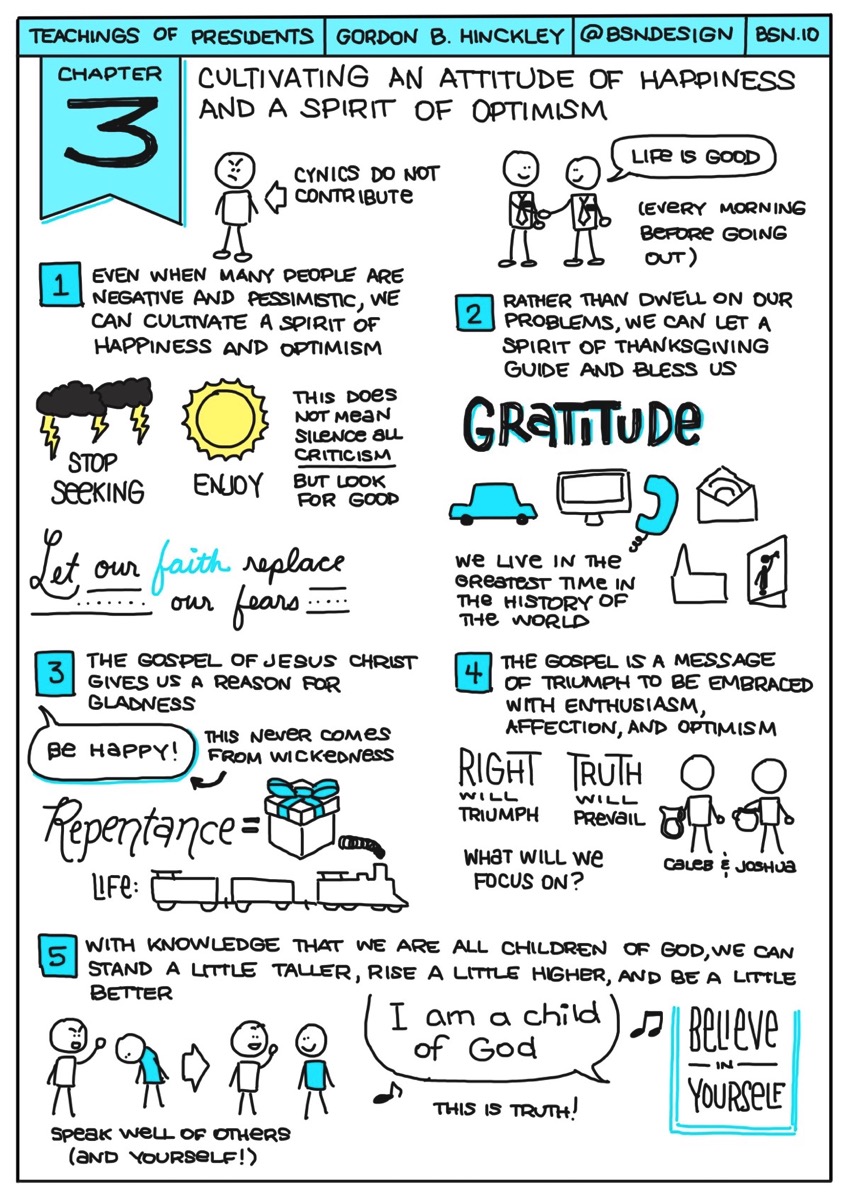 TEACHINGS OF PRESIDENTS
GORDON B. HINCKLEY
@BSNDESIGN
BSN.IO
CHAPTER
3
CULTIVATING AN ATTITUDE OF HAPPINESS
AND A SPIRIT OF OPTIMISM
CYNICS DO NOT
CONTRIBUTE
LIFE IS GOOD
(EVERY MORNING
BEFORE GOING
OUT)
1
EVEN WHEN MANY PEOPLE ARE
NEGATIVE AND PESSIMISTIC, WE
CAN CULTIVATE A SPIRIT OF
HAPPINESS AND OPTIMISM
2
RATHER THAN DWELL ON OUR
PROBLEMS, WE CAN LET A
SPIRIT OF THANKSGIVING
GUIDE AND BLESS US
STOP
SEEKING
ENJOY
THIS DOES
NOT MEAN
SILENCE ALL
CRITICISM
BUT LOOK
FOR GOOD
GRATITUDE
Let our faith replace
our fears
WE LIVE IN THE
GREATEST TIME IN
THE HISTORY OF
THE WORLD
3
THE GOSPEL OF JESUS CHRIST
GIVES US A REASON FOR
GLADNESS
BE HAPPY!
THIS NEVER COMES
FROM WICKEDNESS
Repentance =
LIFE:
4
THE GOSPEL IS A MESSAGE
OF TRIUMPH TO BE EMBRACED
WITH ENTHUSIASM,
AFFECTION, AND OPTIMISM
RIGHT
WILL
TRIUMPH
TRUTH
WILL
PREVAIL
CALEB & JOSHUA
WHAT WILL WE
FOCUS ON?
5
WITH KNOWLEDGE THAT WE ARE ALL CHILDREN OF GOD, WE CAN
STAND A LITTLE TALLER, RISE A LITTLE HIGHER, AND BE A LITTLE
BETTER
SPEAK WELL OF OTHERS
(AND YOURSELF!)
I am a child
of God
THIS IS TRUTH!
BELIEVE
IN
YOURSELF